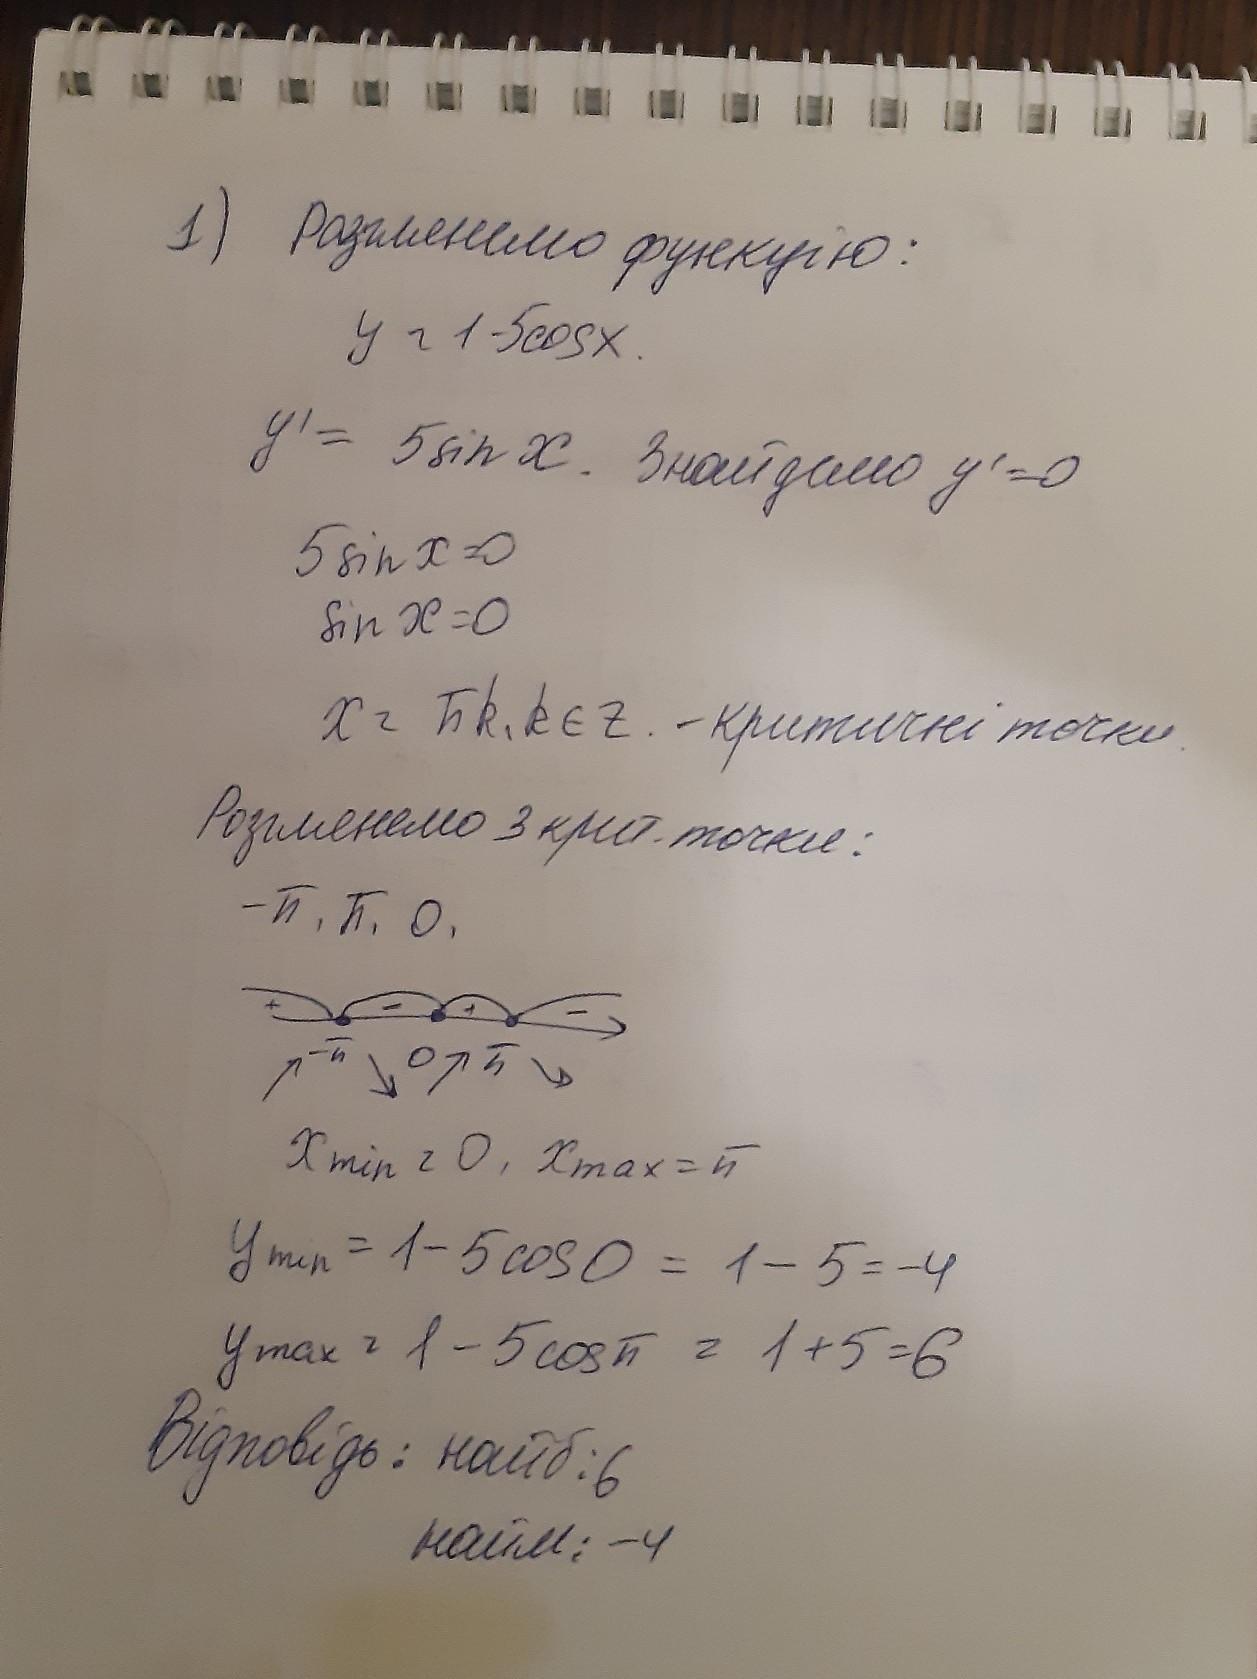 1) Розглянемо функцію:
y = 1-5cosx.
y' = 5sin x. Знайдемо y'=0
5 sin x=0
sin x=0
x = πk, k∈Z. - критичні точки.
Розглянемо 3 крит. точки:
-π, π, 0,
+ - + -
-π 0 π
xmin = 0, xmax = π
ymin = 1 - 5cos0 = 1 - 5 = -4
ymax = 1 - 5cosπ = 1+5=6
Відповідь: найб: 6
найм: -4